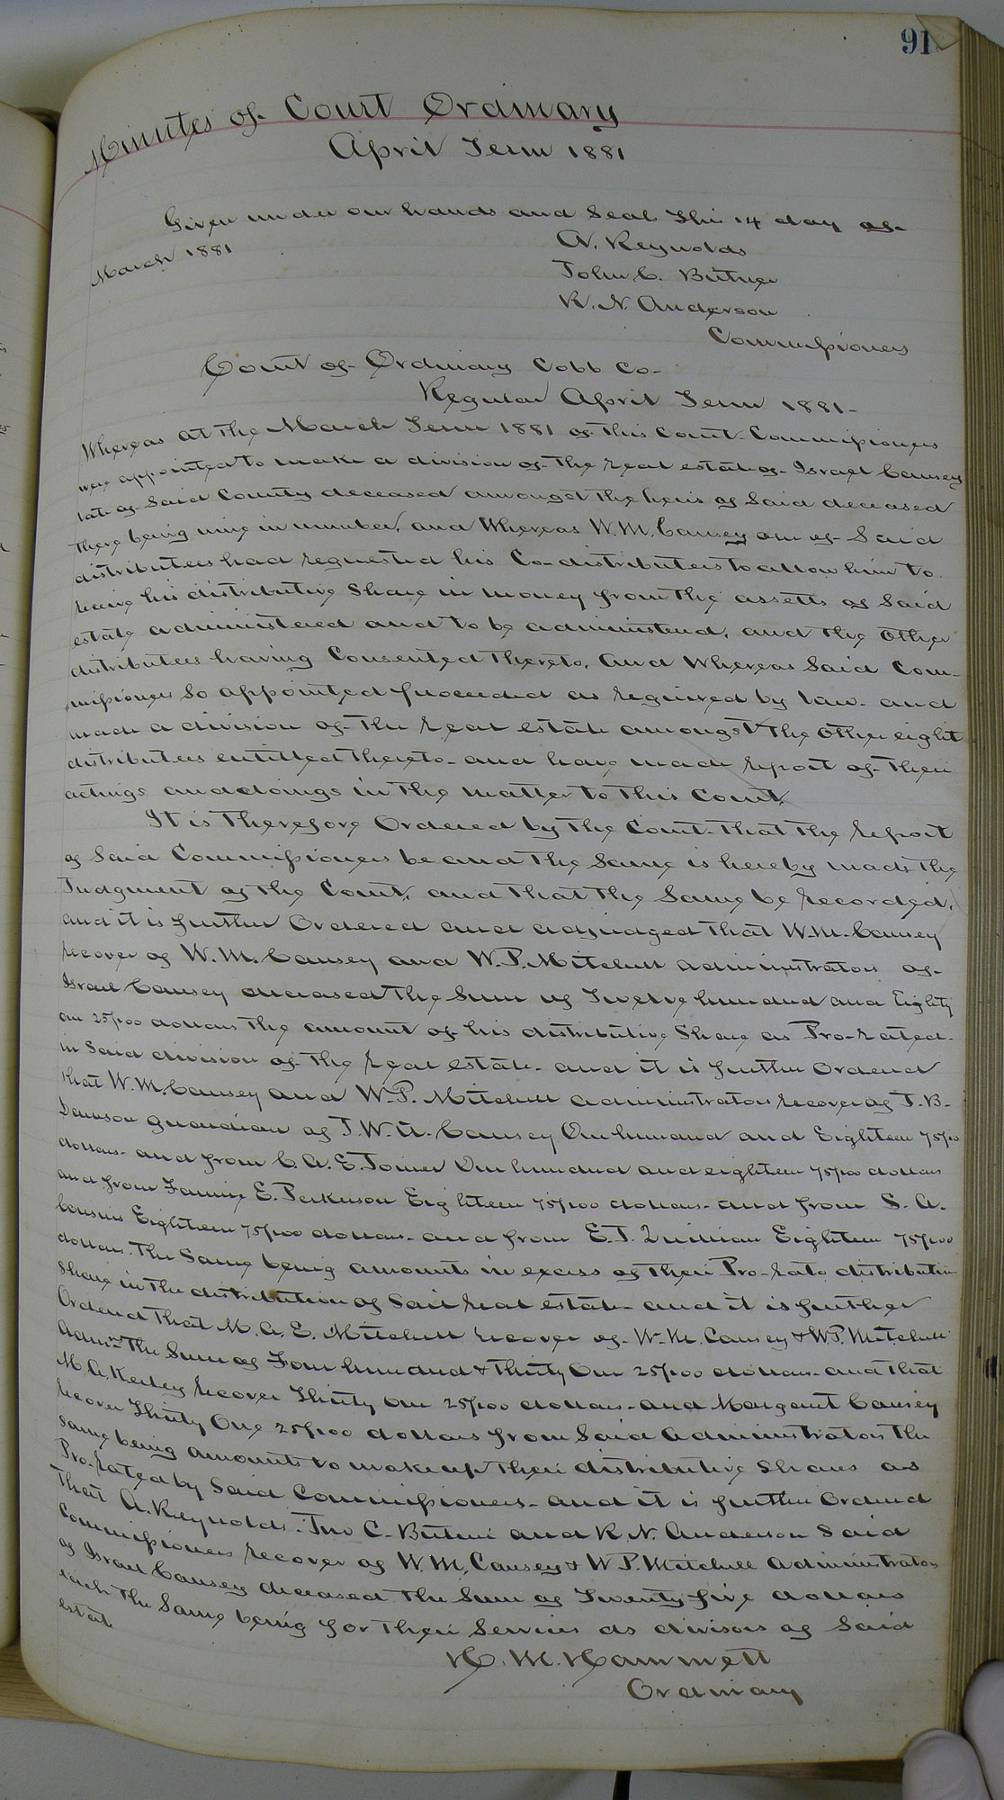 91
Minutes of Court Ordinary
April Term 1881
Given under our hands and Seal This 14 day of
March 1881
A. Reynolds
John C. Butner
R. N. Anderson
Commissioners
Court of Ordinary Cobb Co-
Regular April Term 1881-
Whereas at the March Term 1881 of this Court Commissioners
were appointed to make a division of the real estate of Israel Causey
late of Said County deceased amongst the heirs of Said deceased
there being nine in number, and Whereas W. M. Causey one of Said
distributees had requested his Co-distributees to allow him to
receive his distributive Share in money from the assetts of Said
estate administered and to be administered, and the other
distributees having Consented thereto, and Whereas Said Com-
missioners So appointed proceeded as required by law and
made a division of the real estate amongst the other eight
distributees entitled thereto and have made report of their
actings and doings in the matter to this Court,
It is Therefore Ordered by the Court that the report
of Said Commissioners be and the Same is hereby made the
Judgment of the Court, and that the Same be recorded,
and it is further Ordered and adjudged that W. M. Causey
recover of W. M. Causey and W. P. Mitchell administrators of
Israel Causey deceased the Sum of Twelve hundred and Eighty
one 25/100 dollars the amount of his distributive Share as Pro-rated
in Said division of the real estate and it is further Ordered
that W. M. Causey and W. P. Mitchell administrators recover of T. B.
guardian of J. W. A. Causey One hundred and Eighteen 75/100
dollars and from C. A. E. Joiner One hundred and eighteen 75/100 dollars
and from Fannie E. Perkinson Eighteen 75/100 dollars and from S. A.
Eighteen 75/100 dollars and from E. J. Quinian Eighteen 75/100
dollars The Same being amounts in excess of their Pro-rato distributive
Share in the distribution of Said real estate and it is further
Ordered That M. A. E. Mitchell recover of W. M. Causey & W. P. Mitchell
Admrs The Sum of Four hundred & Thirty One 25/100 dollars and that
M. A. Kerley recover Thirty one 25/100 dollars and Margaret Causey
recover Thirty One 25/100 dollars from Said administrators the
Same being amounts to make up their distributive Shares as
Pro-rated by Said Commissioners and it is further Ordered
That A. Reynolds, Jno C. Butner and R. N. Anderson Said
Commissioners recover of W. M. Causey & W. P. Mitchell Administrators
of Israel Causey deceased the Sum of Twenty five dollars
each the Same being for their Services as divisors of Said
estate
H. M. Hammett
Ordinary